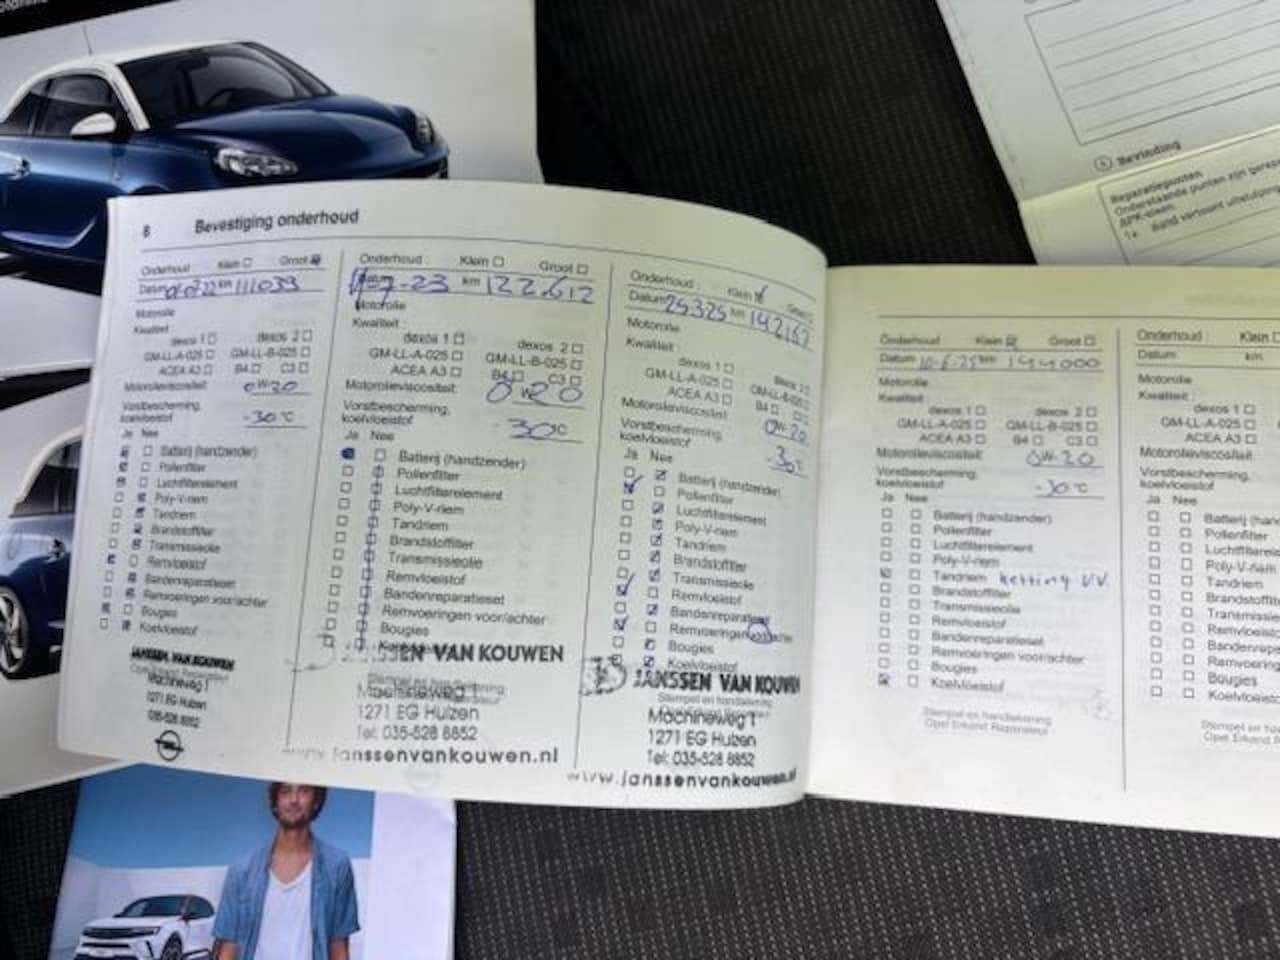 8 Bevestiging onderhoud
Onderhoud : Klein Groot
Datum 01-07-22 km 111039
Motorolie
Kwaliteit :
dexos 1 dexos 2
GM-LL-A-025 GM-LL-B-025
ACEA A3 B4 C3
Motorolieviscositeit: 0W20
Vorstbescherming,
koelvloeistof -30 °C
Ja Nee
Batterij (handzender)
Pollenfilter
Luchtfilterelement
Poly-V-riem
Tandriem
Brandstoffilter
Transmissieolie
Remvloeistof
Bandenreparatieset
Remvoeringen voor/achter
Bougies
Koelvloeistof
JANSSEN VAN KOUWEN
Machineweg 1
1271 EG Huizen
035-528 8852
Onderhoud : Klein Groot
-7-23 km 122.612
Motorolie
Kwaliteit :
dexos 1 dexos 2
GM-LL-A-025 GM-LL-B-025
ACEA A3 B4 C3
Motorolieviscositeit: 0W20
Vorstbescherming,
koelvloeistof -30°C
Ja Nee
Batterij (handzender)
Pollenfilter
Luchtfilterelement
Poly-V-riem
Tandriem
Brandstoffilter
Transmissieolie
Remvloeistof
Bandenreparatieset
Remvoeringen voor/achter
Bougies
JANSSEN VAN KOUWEN
Stempel en handtekening
Machineweg 1
1271 EG Huizen
Tel: 035-528 8852
www.janssenvankouwen.nl
Onderhoud : Klein Groot
Datum 25325 km 142167
Motorolie
Kwaliteit :
dexos 1 dexos 2
GM-LL-A-025 GM-LL-B-025
ACEA A3 B4
Motorolieviscositeit: 0W-20
Vorstbescherming,
koelvloeistof -30°C
Ja Nee
Batterij (handzender)
Pollenfilter
Luchtfilterelement
Poly-V-riem
Tandriem
Brandstoffilter
Transmissieolie
Remvloeistof
Bandenreparatieset
Remvoeringen voor/achter
Bougies
Koelvloeistof
JANSSEN VAN KOUWEN
Stempel en handtekening
Machineweg 1
1271 EG Huizen
Tel: 035-528 8852
www.janssenvankouwen.nl
Onderhoud : Klein Groot
Datum 10-6-25 km 144000
Motorolie
Kwaliteit :
dexos 1 dexos 2
GM-LL-A-025 GM-LL-B-025
ACEA A3 B4 C3
Motorolieviscositeit: 0W-20
Vorstbescherming,
koelvloeistof -30°C
Ja Nee
Batterij (handzender)
Pollenfilter
Luchtfilterelement
Poly-V-riem
Tandriem ketting V.V.
Brandstoffilter
Transmissieolie
Remvloeistof
Bandenreparatieset
Remvoeringen voor/achter
Bougies
Koelvloeistof
Stempel en handtekening
Opel Erkend Reparateur
Onderhoud : Klein
Datum km
Motorolie
Kwaliteit :
dexos 1
GM-LL-A-025
ACEA A3
Motorolieviscositeit:
Vorstbescherming,
koelvloeistof
Ja Nee
Batterij (han
Pollenfilter
Luchtfiltere
Poly-V-riem
Tandriem
Brandstoffilt
Transmissie
Remvloeist
Bandenrepa
Remvoering
Bougies
Koelvloeist
Stempel en ha
Opel Erkend R
Bevinding
Reparatieposten
Onderstaande punten zijn gerep
APK-eisen.
Band vertoont uitstulping